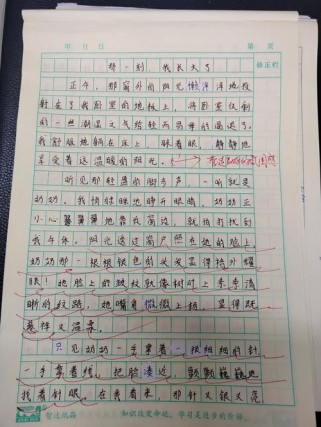 年 月 日 第 页
那一刻，我长大了
修正栏
正午，那窗外的阳光懒洋洋地投
射在了我卧室的地板上，将卧室仅剩
的一丝潮湿又气给轻而易举的蒸没了。
我舒服地躺在床上，眯着眼，静静地
享受着这温暖的阳光。
听见那轻盈的脚步声，一听就是
奶奶。我悄悄地睁开眼睛，奶奶正
小心翼翼地靠在窗边，就怕打扰到
我午休。阳光透过窗户照在她的脸上，
奶奶那一根根银色的头发显得格外耀
眼！她脸上的皱纹就像树叶上条条清
晰的纹路，她嘴角微微上扬，显得既
慈祥又温柔。
只见奶奶一手拿着一根细细的针
一手拿着线，把脸凑近，颤颤巍巍地
找着针眼。在我看来，那针又银又亮
智达纸品 知识改变命运，学习是进步的阶梯。